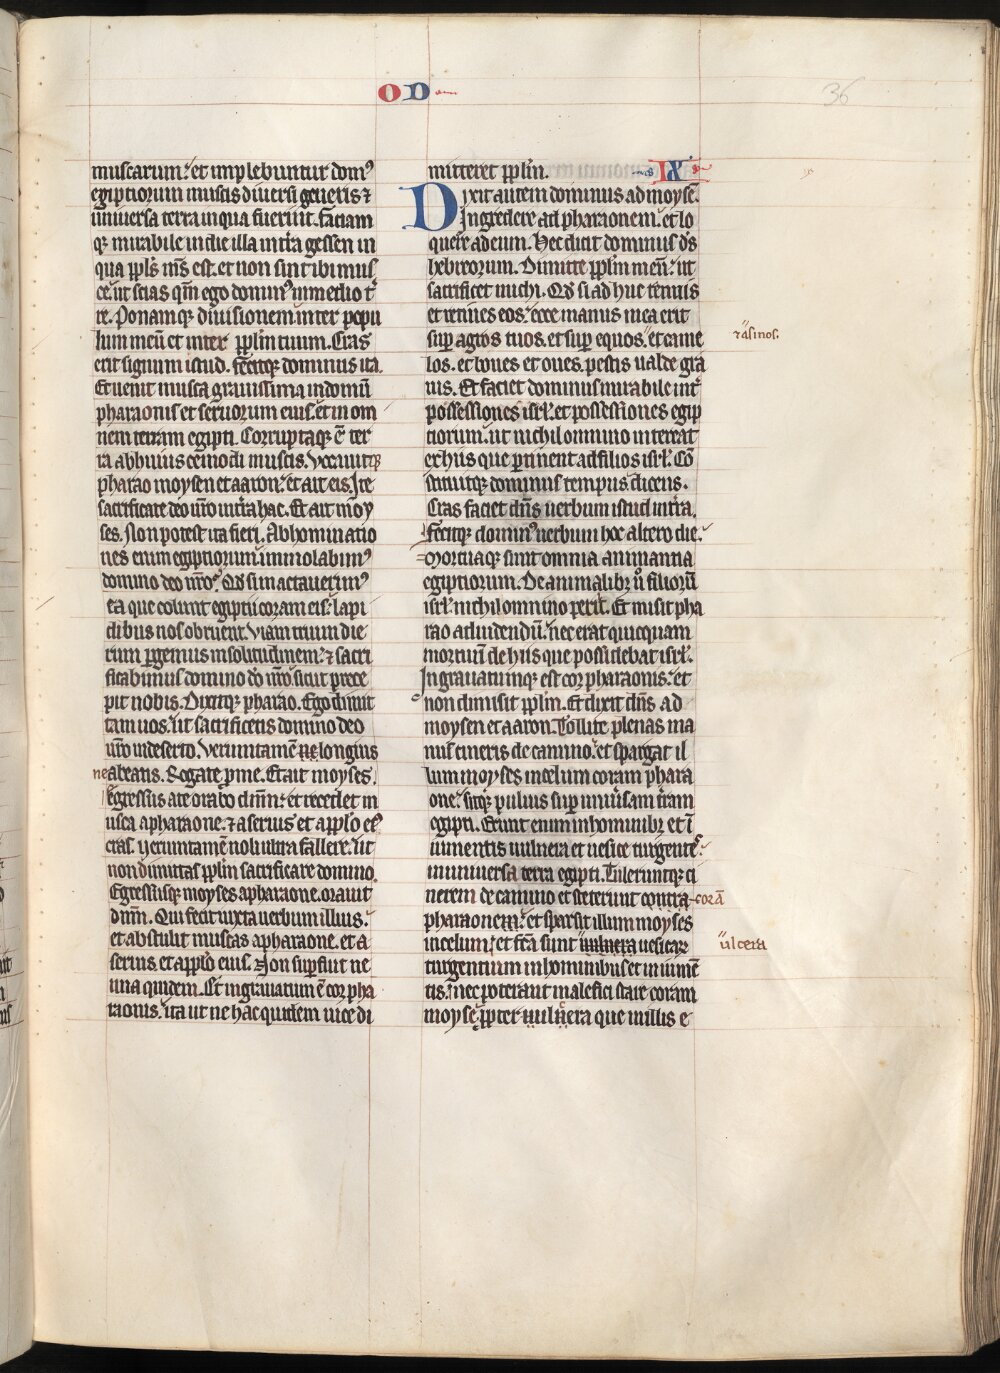 OD
36
muscarum. et implebuntur domꝰ
egiptiorum muscis diuersi generis ⁊
uniuersa terra in qua fuerint. faciam
qꝫ mirabile in die illa terra gessen in
qua ppls mīs est. et non sint ibi mus
ce. ut scias qm̄ ego dominꝰ in medio t̄
re. Ponamqꝫ diuisionem inter popu
lum meū et inter pplm̄ tuum. Cras
erit signum istud. fecitqꝫ dominus ita.
Et uenit musca grauissima in domū
pharaonis et seruorum eius. et in om
nem terram egipti. Corruptaqꝫ ē ter
ra ab huius cemodi muscis. Vocauitqꝫ
pharao moysen et aaron. et ait eis. Ite
sacrificate deo ur̄o in t̄ra hac. Et ait moy
ses. Non potest ita fieri. Abhominatio
nes enim egiptiorum immolabimꝰ
domino deo nr̄o. Qd̄ si mactauerimꝰ
ea que colunt egiptii coram eis. lapi
dibus nos obruent. Viam trium die
rum pergemus in solitudinem. ⁊ sacri
ficabimus domino dō nr̄o sicut prece
pit nobis. Dixitqꝫ pharao. Ego dimit
tam uos. ut sacrificetis domino deo
ur̄o in deserto. Verumtamē ne longius
ne abeatis. Rogate p me. Et ait moyses.
Egressus a te orabo dn̄m. et recedet m
usca a pharaone. ⁊ a seruis et applo eiꝰ
cras. Verumtamē noli ultra fallere. ut
non dimittas pplm̄ sacrificare domino.
Egressusqꝫ moyses a pharaone. orauit
dn̄m. Qui fecit iuxta uerbum illius.
et abstulit muscas a pharaone. et a
seruis. et a pplo eius. Non supfuit ne
una quidem. Et ingrauatum ē cor pha
raonis. ita ut ne hac quidem uice di
mitteret pplm̄. IX
Dixit autem dominus ad moysē.
Ingredere ad pharaonem. et lo
quere ad eum. Hec dicit dominus ds̄
hebreorum. Dimitte pplm̄ meū. ut
sacrificet michi. Qd̄ si ad huc renuis
et retines eos. ecce manus mea erit
sup agros tuos. et sup equos. et came
⁊ asinos.
los. et boues et oues. pestis ualde gra
uis. Et faciet dominus mirabile int̄
possessiones isrl̄. et possessiones egip
tiorum. ut nichil omnino intereat
ex hiis que ptinent ad filios isrl̄. Cō
stituitqꝫ dominus tempus dicens.
Cras faciet dn̄s uerbum istud in t̄ra.
fecitqꝫ dominꝰ uerbum hoc altero die.
Mortuaqꝫ sunt omnia animantia
egiptiorum. De animalibꝫ ū filiorū
isrl̄. nichil omnino perit. Et misit pha
rao ad uidendū. nec erat quicquam
mortuū de hiis que possidebat isrl̄.
Ingrauatumqꝫ est cor pharaonis. et
non dimisit pplm̄. Et dixit dn̄s ad
moysen et aaron. Tollite plenas ma
nus cineris de camino. et spargat il
lum moyses in celum coram phara
one. sitqꝫ puluis sup uniūsam t̄ram
egipti. Erunt enim in hominibꝫ et ī
iumentis uulnera et uesice turgentes
in uniuersa terra egipti. Tuleruntqꝫ ci
nerem de camino et steterunt contra
corā
pharaonem. et sparsit illum moyses
in celum. et fc̄a sunt uulnera uesicar
ulcera
turgentium in hominibus et in iumē
tis. nec poterant malefici stare coram
moyse ppter uulnera que in illis e